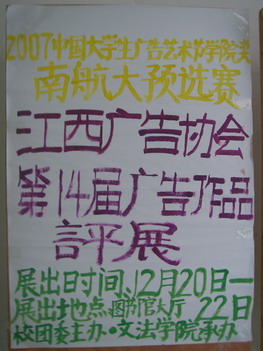 2007中国大学生广告艺术节学院奖
南航大预选赛
江西广告协会
第14届广告作品
評展
展出日时间、12月20日一
展出地点、图书馆大厅 22日
校团委主办·文法学院承办